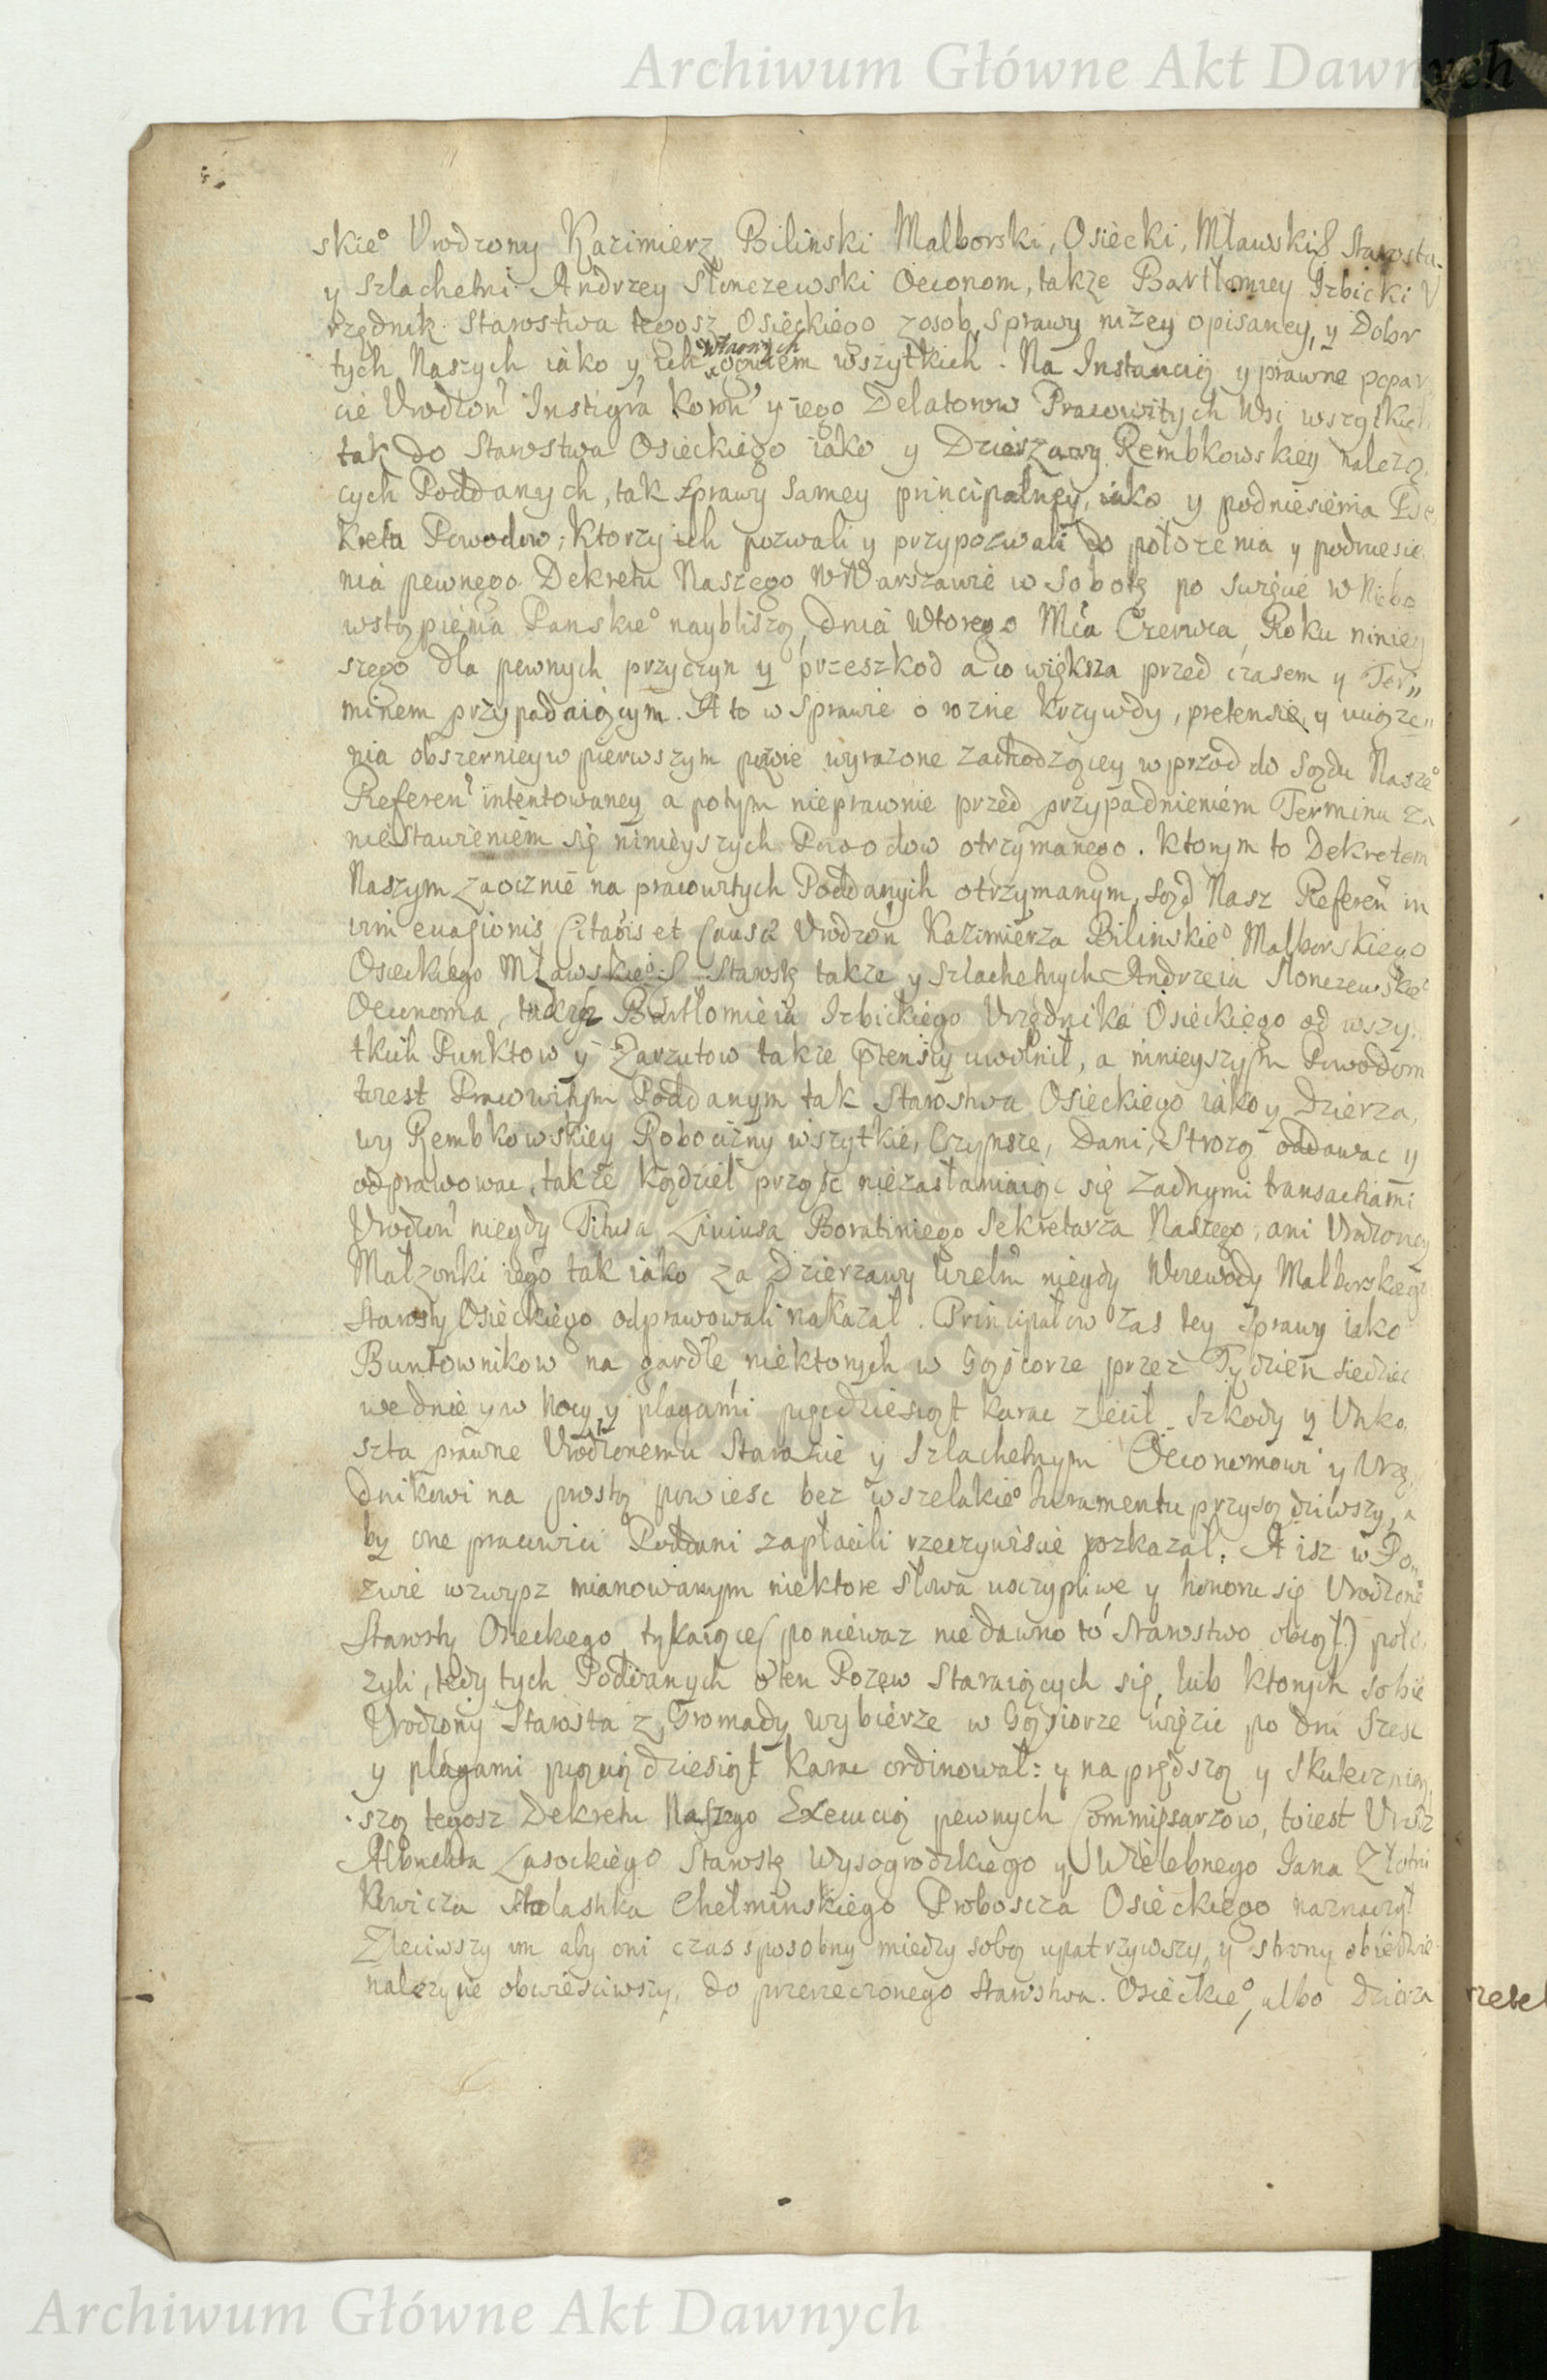 Archiwum Główne Akt Dawnych
skie° Vrodzony Kazimierz Bilinski Malborski, Osiecki, Mławski & Starosta.
y Szlachetni Andrzey Słonczewski Oeconom, także Bartłomiey Izbicki V
rzędnik Starostwa tegosz Osieckiego zosob, Sprawy niżey opisaney, y Dobr
tych Naszych iáko y ich własnych ogułem wszytkich. Na Instancią y prawne popar
cie Vrodzon' Instigra Koron' y iego Delatorow Pracowitych Wsi wszytkich
tak do Starostwa Osieckiego iako y Dzierzawy Rembkowskiey nalezą
cych Poddanych, tak Sprawy samey principalney, iako y podniesienia De
kretu Powodow; Ktorzy ich pozwali y przypozwali do położenia y podniesie
nia pewnego Dekretu Naszego w Warszawie w Sobotę po Swięcie w Niebo
wstąpienia Panskie° naybliszą, dnia Wtorego Mca Czerwca, Roku niniey
szego dla pewnych przyczyn y przeszkod a co większa przed czasem y Ter„
minem przypadaiącym. A to w Sprawie o rozne Krzywdy, pretensie, y uciąże„
nia obszerniey w pierwszym pozwie wyrazone zachodzącey wprzod do Sądu Nasze°
Referen' intentowaney a potym nieprawnie przed przypadnieniem Terminu za
niestawieniem się ninieyszych Powodow otrzymanego. Ktorym to Dekretem
Naszym zaocznie na pracowitych Poddanych otrzymanym, Sąd Nasz Referen in
vim euasionis Citaõis et Causa Vrodzon Kazimierza Bilinskie° Malborskiego
Osieckiego Mławskie° & Starostę takze y Szlachetnych Andrzeia Słonczewskie°
Oeconoma, także Bartłomieia Izbickiego Vrzędnika Osieckiego od wszy,
tkich Punktow y Zarzutow takze ptensiy uwolnił, a ninieyszym Powodom
to iest Pracowitym Poddanym tak Starostwa Osieckiego iako y Dzierza,
wy Rembkowskiey Robocizny wszytkie, Czynsze, Dani, Strozą oddawac y
odprawowac, także Kądziel prząść niezasłaniaiąc się zadnymi transactiami
Vrodzon' niegdy Titusa Liuiusa Boratiniego Sekretarza Naszego, ani Vrodzoney
Małzonki iego tak iako za Dzierzawy Wielm niegdy Woiewody Malborskiego
Starosty Osieckiego odprawowali nakazał. Principałow zas tey Sprawy iako
Buntownikow na gardle, niektorych w Gąsiorze przez Tydzien siedziec
we dnie y w Nocy y plagami pięcdziesiąt karac zlecił. Szkody y Unko,
szta prawne Vrodzonemu Staroscie y Szlachetnym Oeconomowi y Vrzę,
dnikowi na prostą powiesc bez wszelakie° Iuramentu przysądziwszy, a
by one pracowici Poddani zapłacili rzeczywiscie rozkazał. A isz w Po„
zwie wzwysz mianowanym niektore słowa usczypliwe y honoru się Vrodzone°
Starosty Osieckiego tykaiące (poniewaz niedawno to Starostwo obiął) poło,
zyli, tedy tych Poddanych oten Pozew Staraiących się, lub ktorych sobie
Vrodzony Starosta z Gromady wybierze w Gąsiorze więzic po dni Szesc
y plagami pięcią dziesiąt karac ordinował: y na prędszą y skutecznieј
szą tegosz Dekretu Naszego Executią pewnych Commissarzow, toiest Vrodz
Albrichta Lasockiego Starostę Wysogrodzkiego y Wielebnego Iana Złotni
kiewicza Scholastika Chełminskiego Proboscza Osieckiego naznaczył
Zleciwszy im aby oni czas sposobny miedzy sobą upatrzywszy, y strony obiedwie
nalezycie obwiesciwszy, do przerzeczonego Starostwa Osieckie°, albo Dzierza
Archiwum Główne Akt Dawnych